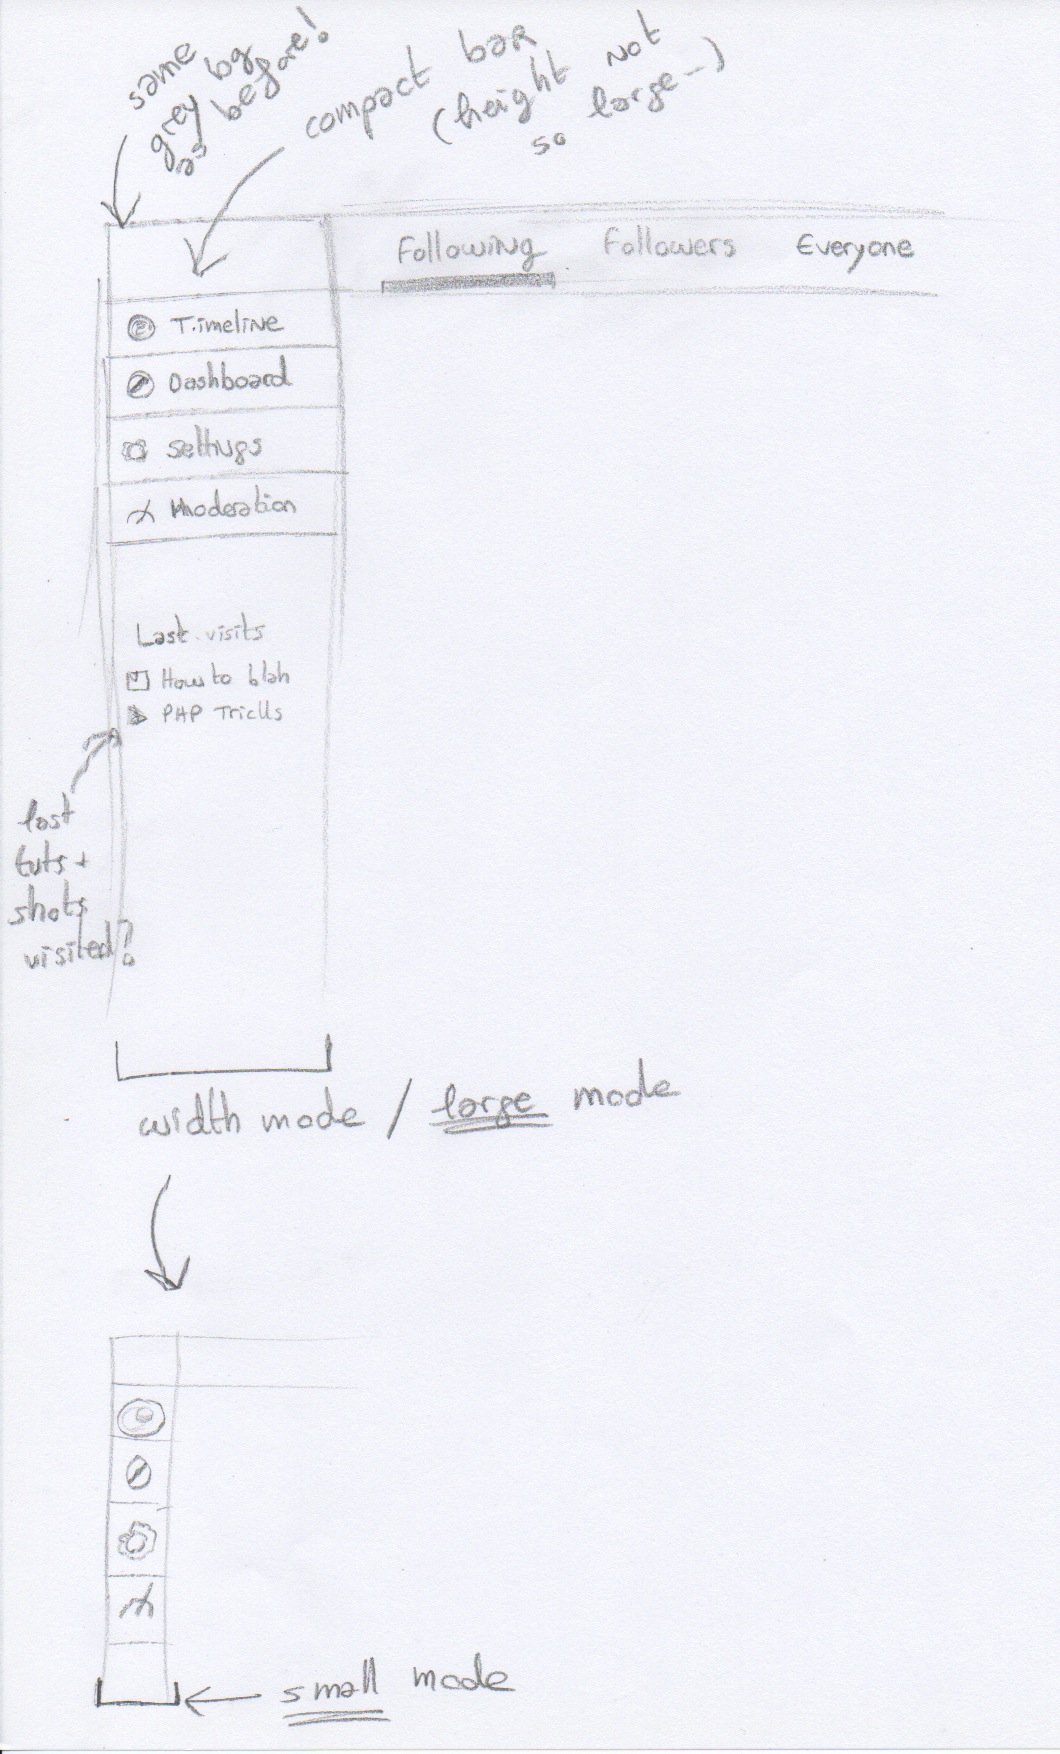 same
grey bg
as before!
compact bar
(height not
so large-)
Following Followers Everyone
Timeline
Dashboard
Settings
Moderation
Last visits
How to blah
PHP Tricks
last
tuts +
shots
visited?
width mode / large mode
small mode